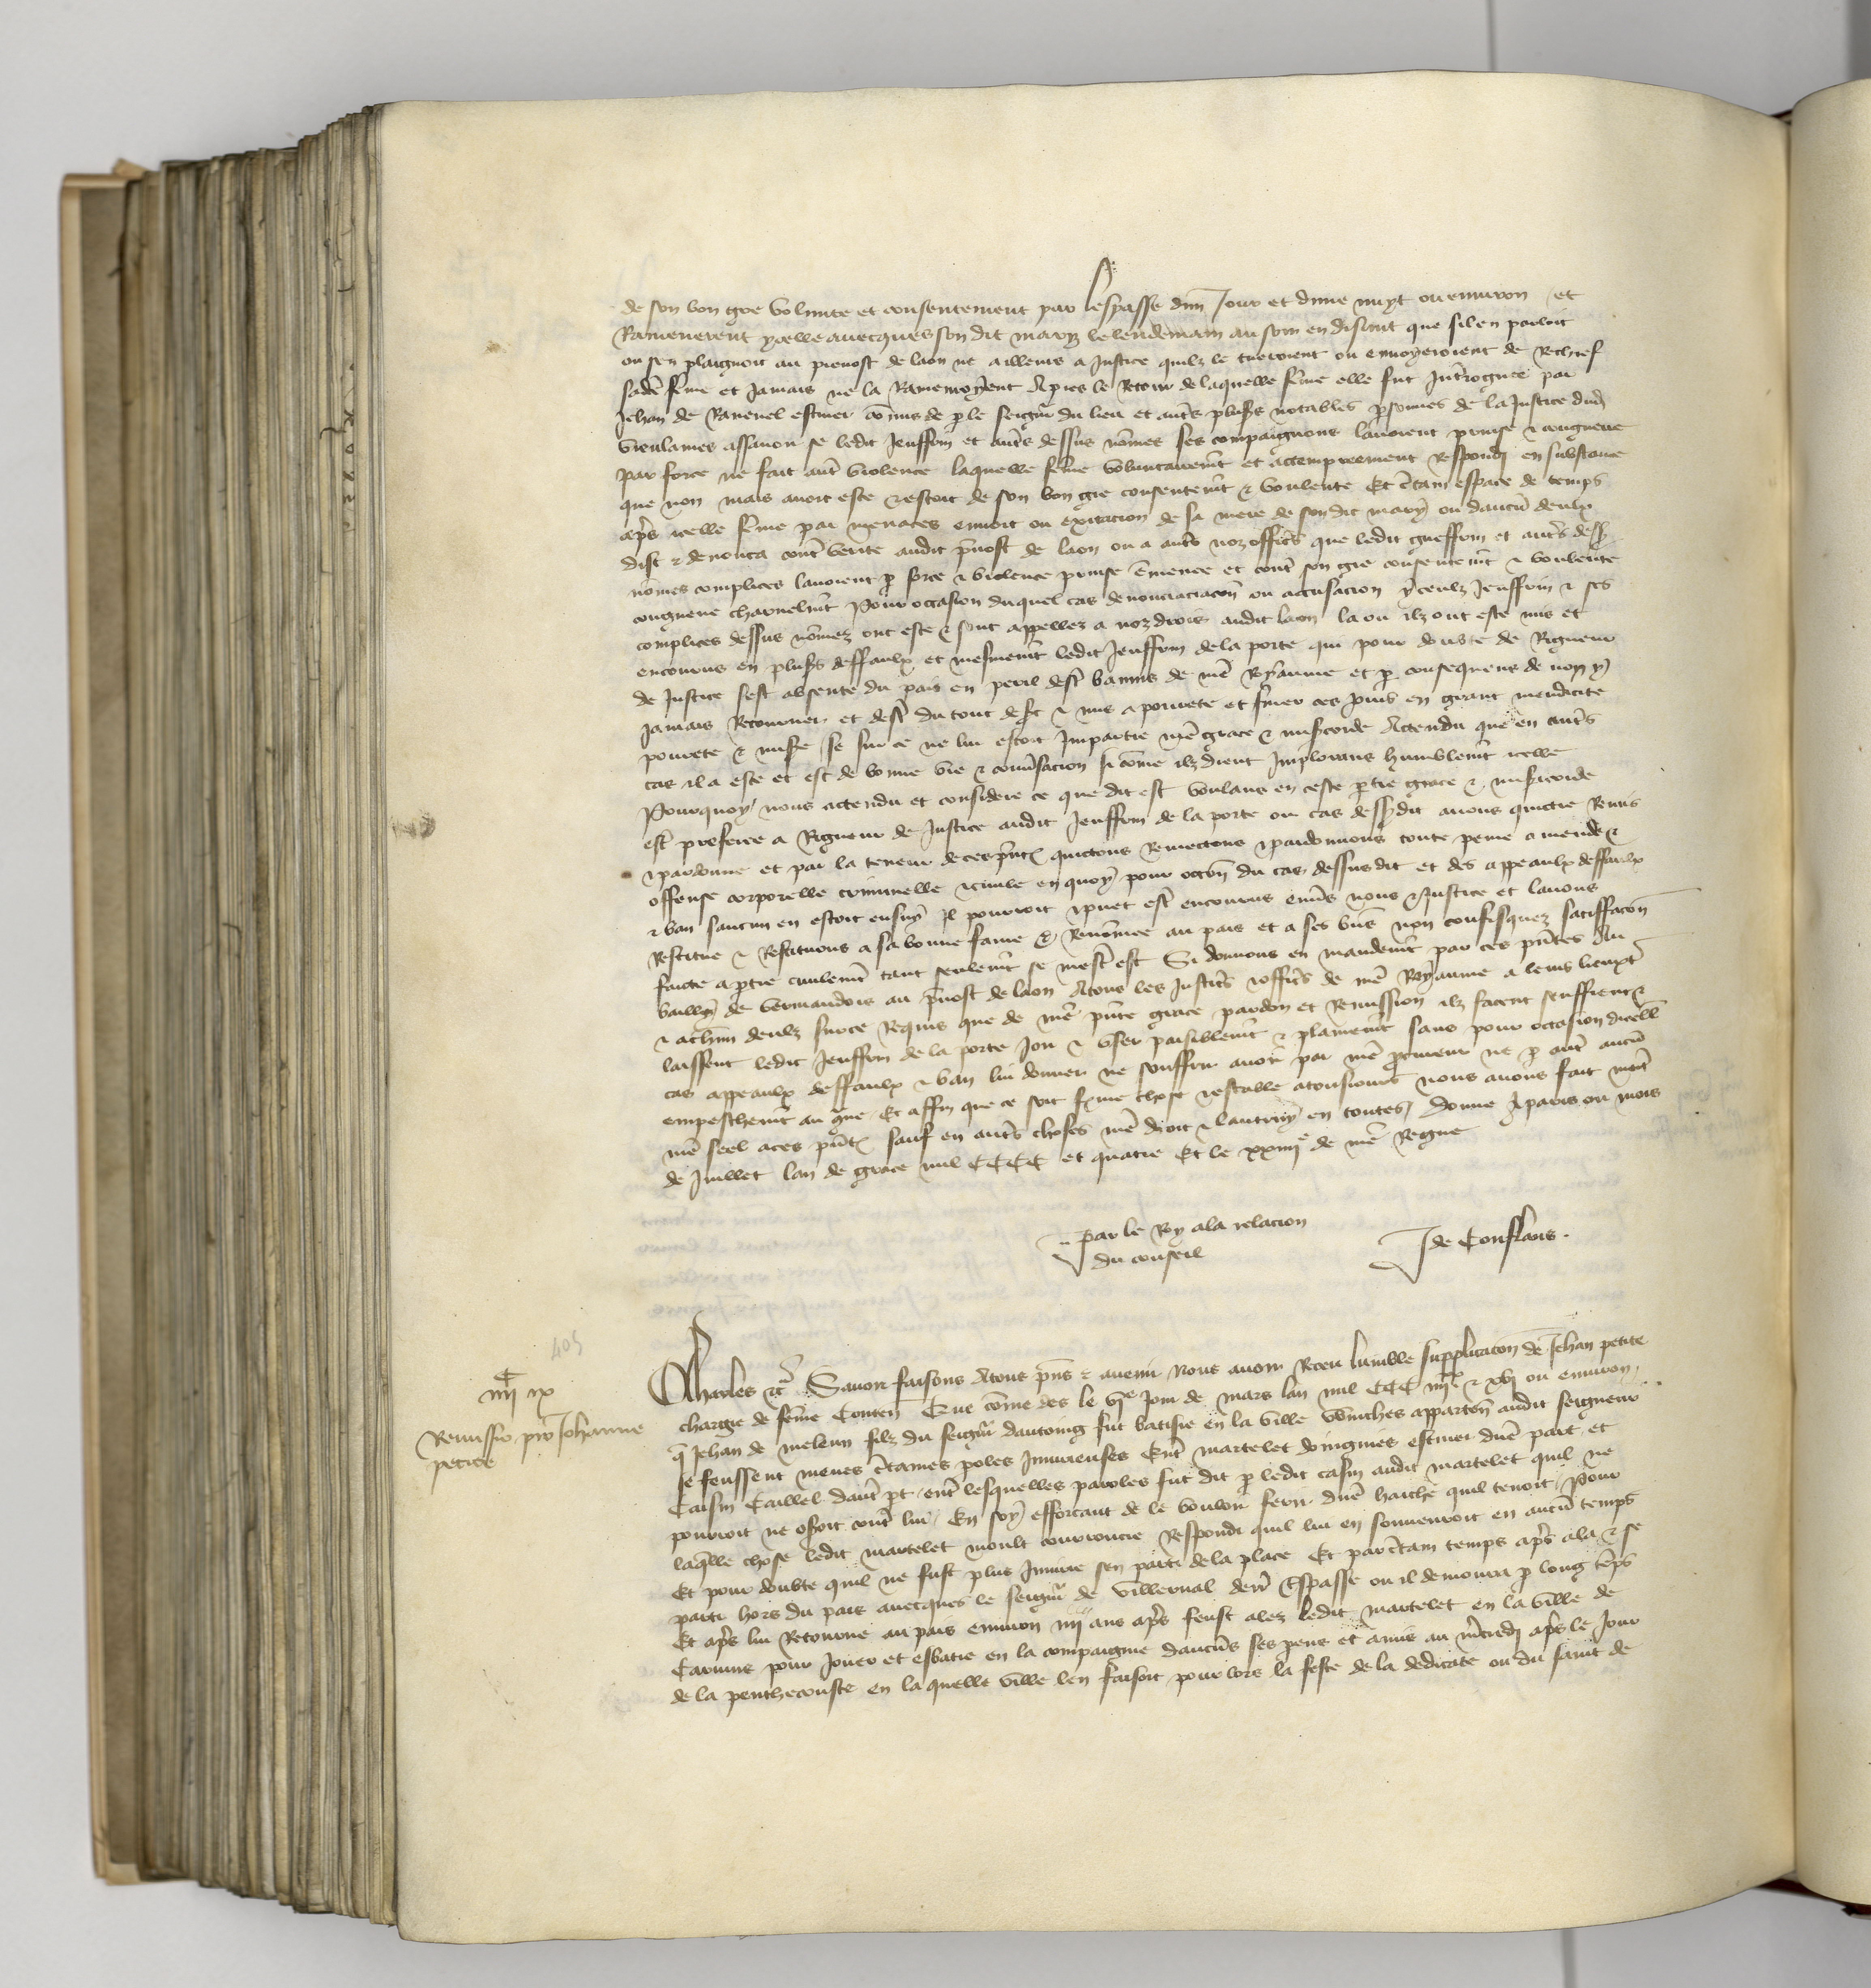 de son bon gre volunte et consentement par lespasse dun Jour et dune nuyt ou environ / et
Ramenerent ycelle avecques son dit mary lelendemain au soir en disant que sil en parloit
ou sen plaignoit au prevost de laon ne ailleurs a Justice quilz le tueroient ou envoyeroient de Rechief
sadce fēme et Jamais ne la Ramenroyent Apres le Retour de laquelle fēme elle fut Int'roguee par
Jehan de Ravenel escuier cōmis de p le seigñr du lieu et aut's plus's notables p'sonnes de la Justice dud
vieulames assavoir se ledit Jeuffrin et aut's dessus nōmes ses compaignons lavoient prinse & congneue
par force ne fait aut' violence laquelle fēme voluntairemt et actempreement Respondi en substance
que non mais avoit este & estoit de son bon gre consentemt & voulente Et c'tain espace de temps
apr's icelle fēme par menaces ennort ou exitacion de la mere de sondit mary ou daucū deulx
dist & denonca cont' verite audit p'vost de laon ou a aut's noz offic's que ledit gueffrin et aut's dess
nōmes complices lavoient p force & violence prinse ēmenee et cont' son gre consentemt & voulente
congneue charnelmt Pour occasion duquel cas denonciacion ou accusacion yceulx Jeuffrin & ses
complices dessus nōmez ont este & sont appellez a noz drois audit laon la ou ilz ont este mis et
encourus en plus's deffaulx et mesmemt ledit Jeuffrin de la porte qui pour doubte de Rigueur
de Justice sest absente du pais en peril dest' bannis de nre Royaume et p consequens de non y
Jamais Retourner et dest' du tout desert & mis a povrete et finer ces Jours en grant mendicite
povrete & mis'e se sur ce ne lui estoit Impartie nre grace & mis'icorde Actendu que en aut's
cas il a este et est de bonne vie & conv'sacion si cōme ilz dient Implorans humblemt icelle
Pourquoy / nous actendu et considere ce que dit est voulans en ceste p'tie grace & mis'icorde
est' preferee a Rigueur de Justice audit Jeuffrin de la porte ou cas dessusdit avons quictie Remis
& pardonne et par la teneur de ces p'ntes quictons Remectons & pardonnons toute peine amende &
offense corporelle criminelle & civile en quoy pour occōn du cas dessusdit et des appeaulx deffaulx
& ban saucun en estoit ensuy Il pourroit & puet est' encourus env's nous & Justice et lavons
Restitue & Restituons a sa bonne fame & Renōmee au pais et a ses b'ns non confisquez satiffacōn
faicte a p'tie civilemt tant seulemt se mest' est Si donnons en mandemt par ces p'ntes Au
bailly de vermandois au p'vost de laon Atous les Justic's & offic's de nre Royaume a leurs lieuxt'
& a chūn deulz si cōe Requis que de nre p'nte grace pardon et Remission ilz facent seuffrent &
laissent ledit Jeuffrin de la porte Joir & user paisiblemt & plainemt sans pour occasion dicell
cas appeaulx deffaulx & ban lui donner ne souffrir avoir par nre procureur ne p aut' aucū
empeschemt au gñe. Et affin que ce soit ferme chose & estable atousiours nous avons fait mett'
nre seel a ces p'ntes sauf en aut's choses nre droit & lautruy en toutes / Donne Aparis ou mois
de Juillet lan de grace mil CCCC et quatre Et le xxiiiie de nre Regne
par le Roy ala relacion
du conseil
J de Conflans.
405
iiiic ix
Remissio pro Johanne
petite
Charles &c' Savoir faisons Atous p'ns & avenir Nous avoir Receu lumble supplicacōn de Jehan petite
chargie de fēme Conten' Que cōme des le vie Jour de mars lan mil CCC iiiixx & xvi ou environ,
q Jehan de meleun filz du seigñr dantoing fut batisie en la ville Wuiches apparten' audit seigneur
se feussent meues c'taines poles Iniurieuses Ent' martelet doingnies escuier dune part et
Caisin Caillel daut' pt / ent' lesquelles paroles fut dit p ledit casin audit martelet quil ne
pourroit ne oseroit cont' lui / En soy efforcant de le vouloir ferir dune hache quil tenoit / Pour
laq̄lle chose ledit martelet moult courroucie Respondi quil lui en souvenroit en aucū temps
Et pour doubte quil ne fust plus Iniurie sen parti de la place Et par c'tain temps apr's ala & se
parti hors du pais avecques le seigñr de villerval ou il demoura p long tēps
Et apr's lui Retourne au pais environ iiii ans apr's feust alez ledit martelet en la ville de
Caruins pour Jouer et esbatre en la compaignie daucūs ses pens et amis au m'credi apr's le Jour
de la penthecouste en laquelle ville len faisoit pour lors la feste de la dedicace ou du saint de